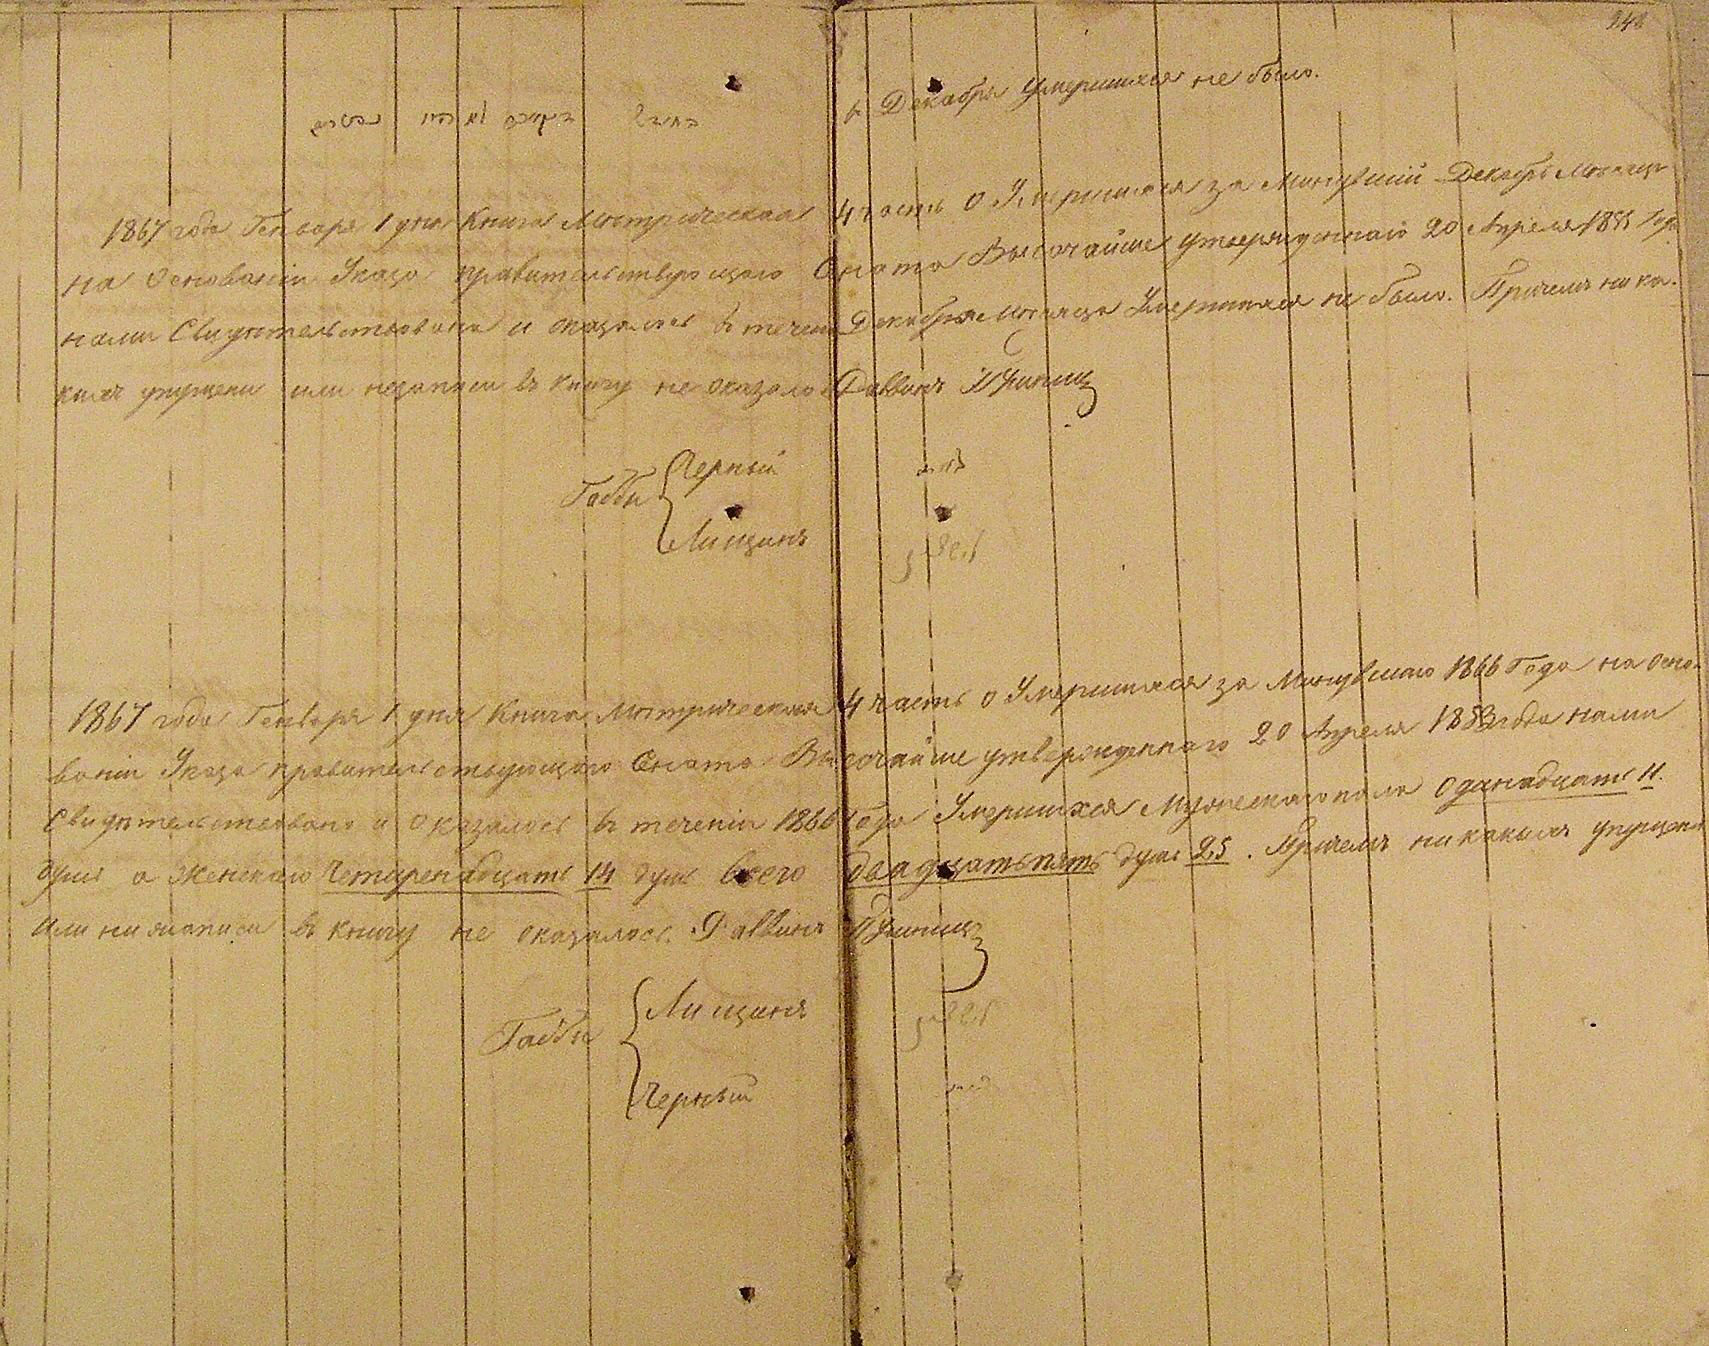 242
בחודש דעקאבר לא היו נפטרים
в Декабря Умершихся не было.
1867 года Генваря 1 дня Книга Метрическая 4 часть о Умершихся за Минувший Декабрь Месяцъ
на основаніи Указа правительствующаго Сената Высочайше утвержденнаго 20 Апреля года
нами Свидѣтельствована и оказалось в течении Декабря Месяца Умершихся не было. Причемъ ника-
кихъ упущени или незаписи въ книгу не оказалось Раввинъ
Габби Черный
Лищинъ
1867 года Генваря 1 дня Книга Метрическая 4 часть о Умершихся за Минувшаго 1866 Года на осно-
ваніи Указа правительствующаго Сената Высочайше утвержденнаго 20 Апреля 1853 года нами
Свидѣтельствовано и оказалось въ теченіи 1866 Года Умершихся Мужескаго пола одинадцать 11.
душъ а Женскаго Четиренадцать 14 душъ всего двадцать пять душъ 25. Причемъ никакихъ упущени
или ни записи въ книгу не оказалось. Раввинъ
Габби Лищинъ
Черный